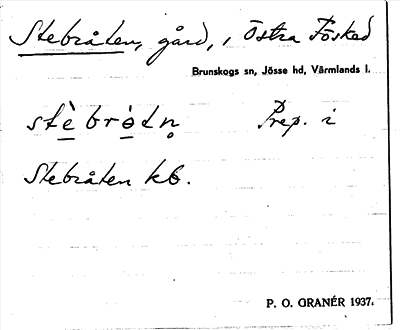 Stebråten, gård, i Östra Fösked
Brunskogs sn, Jösse hd, Värmlands l.
stè̱brò̱tn̥ Prep. i
Stebråten kb.
P. O. GRANÉR 1937.